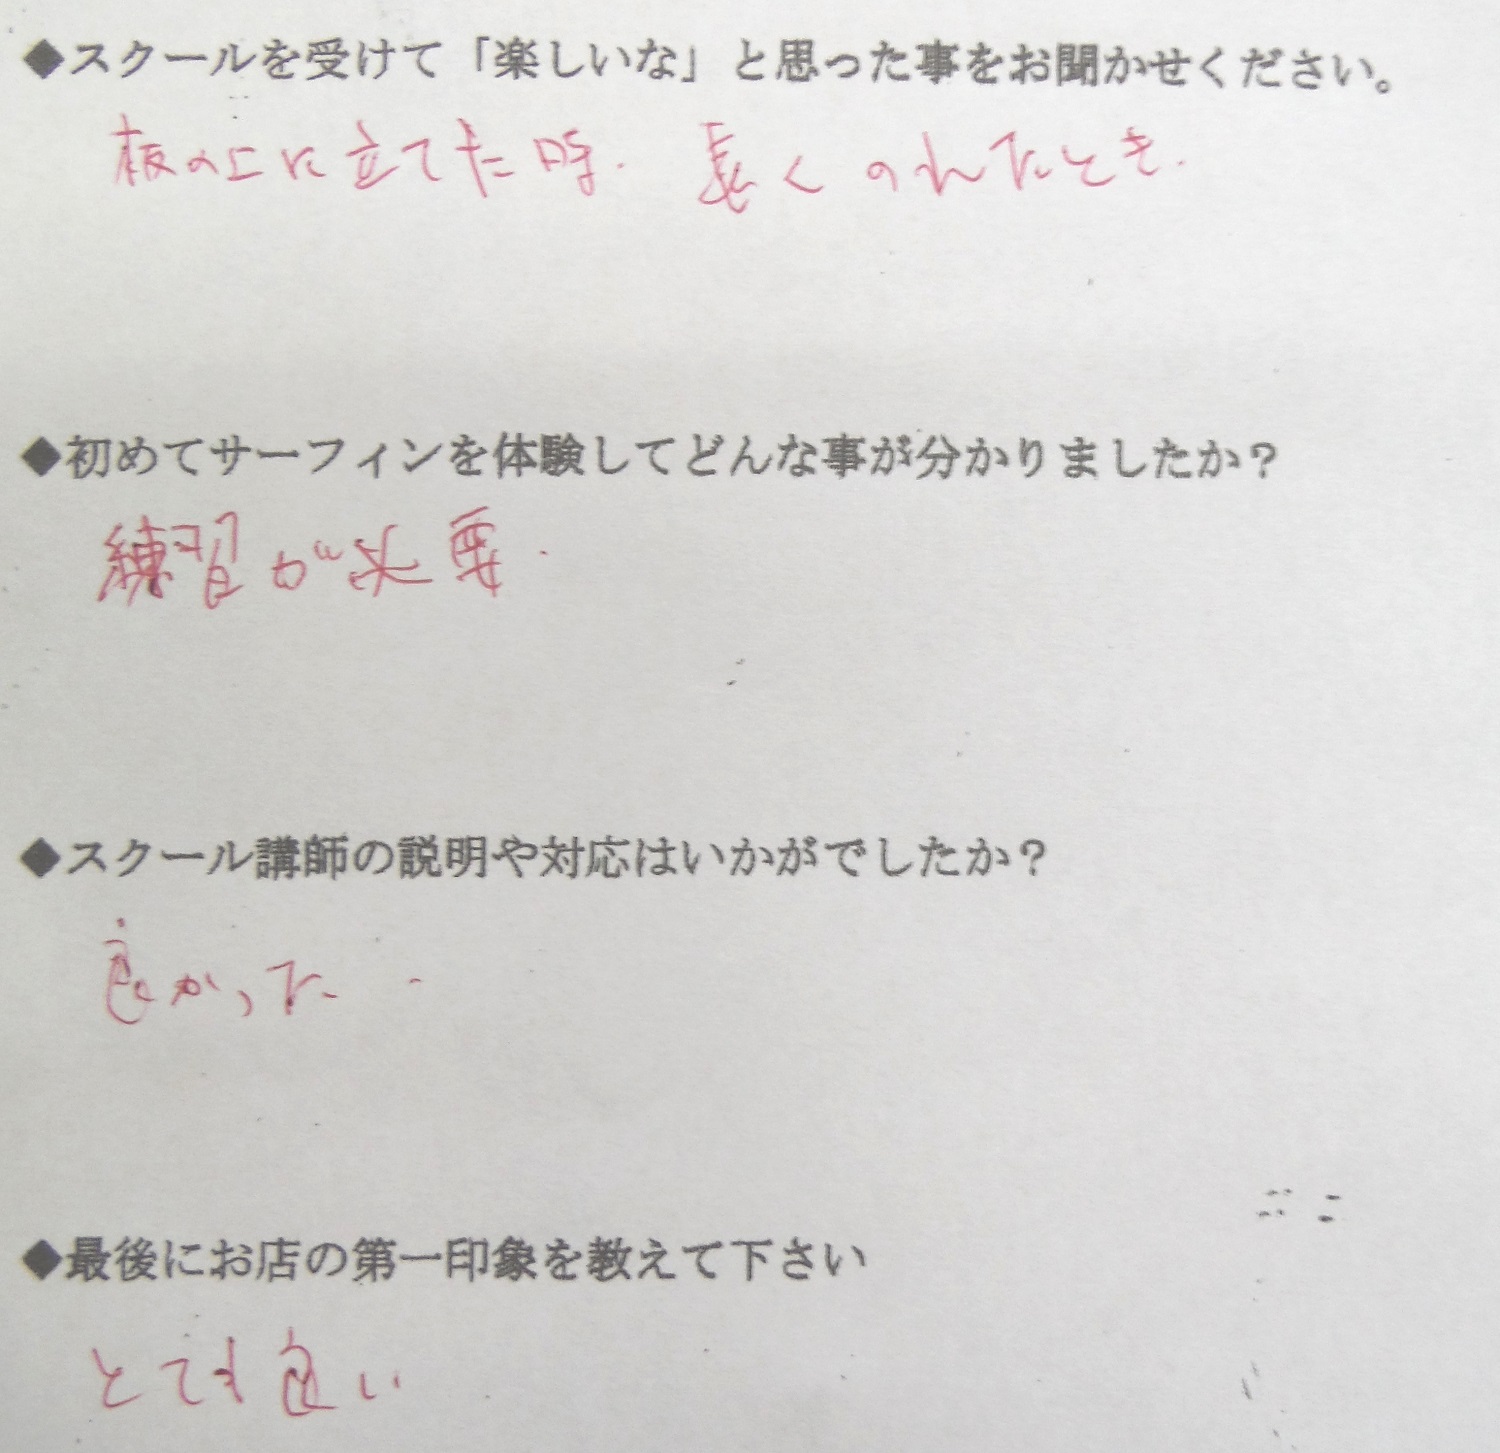 ◆スクールを受けて「楽しいな」と思った事をお聞かせください。
板の上に立てた時. 長くのれたとき.
◆初めてサーフィンを体験してどんな事が分かりましたか？
練習が必要.
◆スクール講師の説明や対応はいかがでしたか？
良かった.
◆最後にお店の第一印象を教えて下さい
とても良い